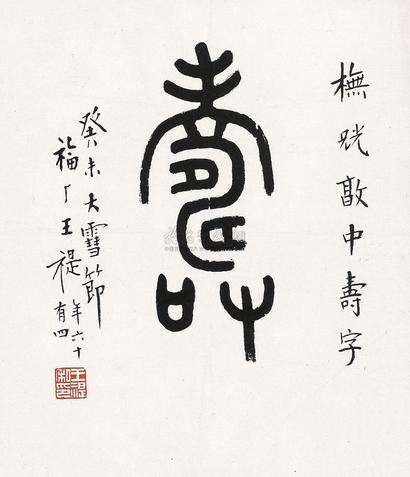 橅敦中壽字
壽
癸未大雪節
福厂王禔
年六十
有四
王禔
私印